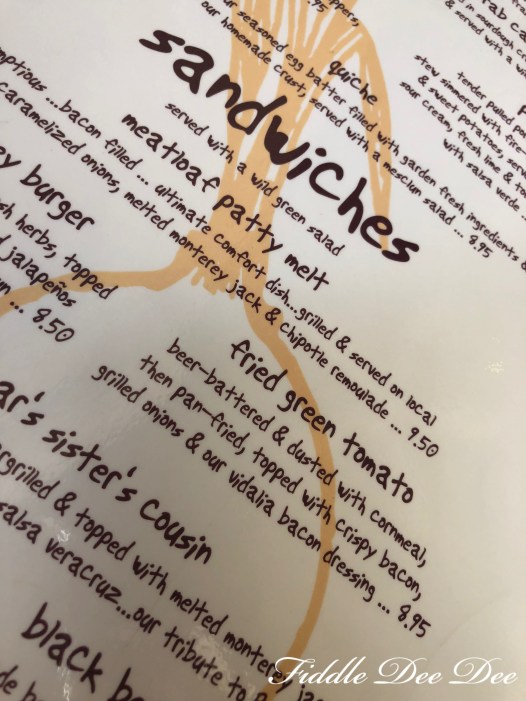 8.95
our seasoned egg batter filled with garden fresh ingredients &
our homemade crust, served with a mesclun salad ... 8.95
quiche
tender pulled
stew simmered with fire
& sweet potatoes,
sour cream, fresh lime &
with salsa verde
sandwiches
served with a wild green salad
meatloaf patty melt
...bacon filled... ultimate comfort dish...grilled & served on local
caramelized onions, melted monterey jack & chipotle remoulade ... 9.50
burger
herbs, topped
jalapeños
... 8.50
fried green tomato
beer-battered & dusted with cornmeal,
then pan-fried, topped with crispy bacon,
grilled onions & our vidalia bacon dressing ... 8.95
sister's cousin
& topped with melted monterey
salsa veracruz...our tribute to
black
Fiddle Dee Dee